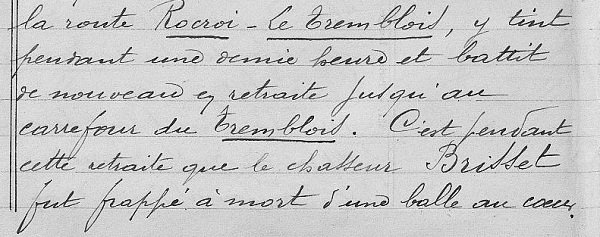 la route Rocroi - Le Tremblois, y tint
pendant une demie heure et battit
de nouveau en retraite jusqu'au
carrefour du Tremblois. C'est pendant
cette retraite que le chasseur Brisset
fut frappé à mort d'une balle au cœur.